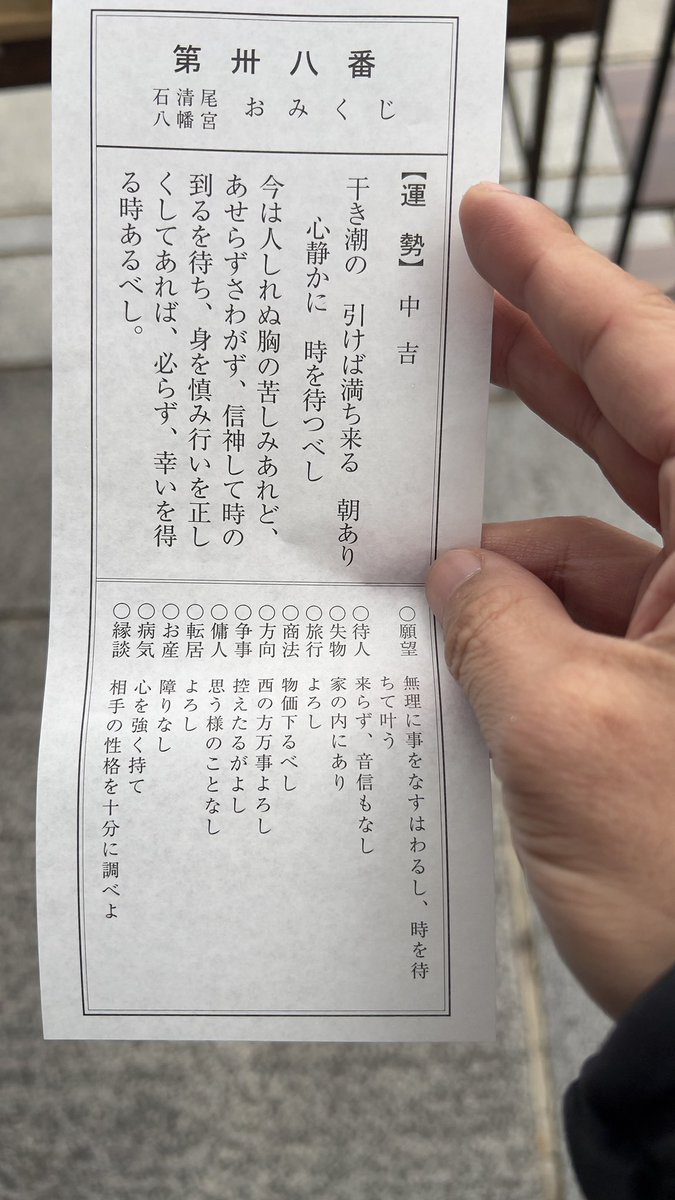 第卅八番
石清尾
八幡宮
おみくじ
【運勢】 中吉
干き潮の 引けば満ち来る 朝あり
心静かに 時を待つべし
今は人しれぬ胸の苦しみあれど、
あせらずさわがず、信神して時の
到るを待ち、身を慎み行いを正し
くしてあれば、必らず、幸いを得
る時あるべし。
○願望 無理に事をなすはわるし、時を待
ちて叶う
○待人 来らず、音信もなし
○失物 家の内にあり
○旅行 よろし
○商法 物価下るべし
○方向 西の方万事よろし
○争事 控えたるがよし
○傭人 思う様のことなし
○転居 よろし
○お産 障りなし
○病気 心を強く持て
○縁談 相手の性格を十分に調べよ